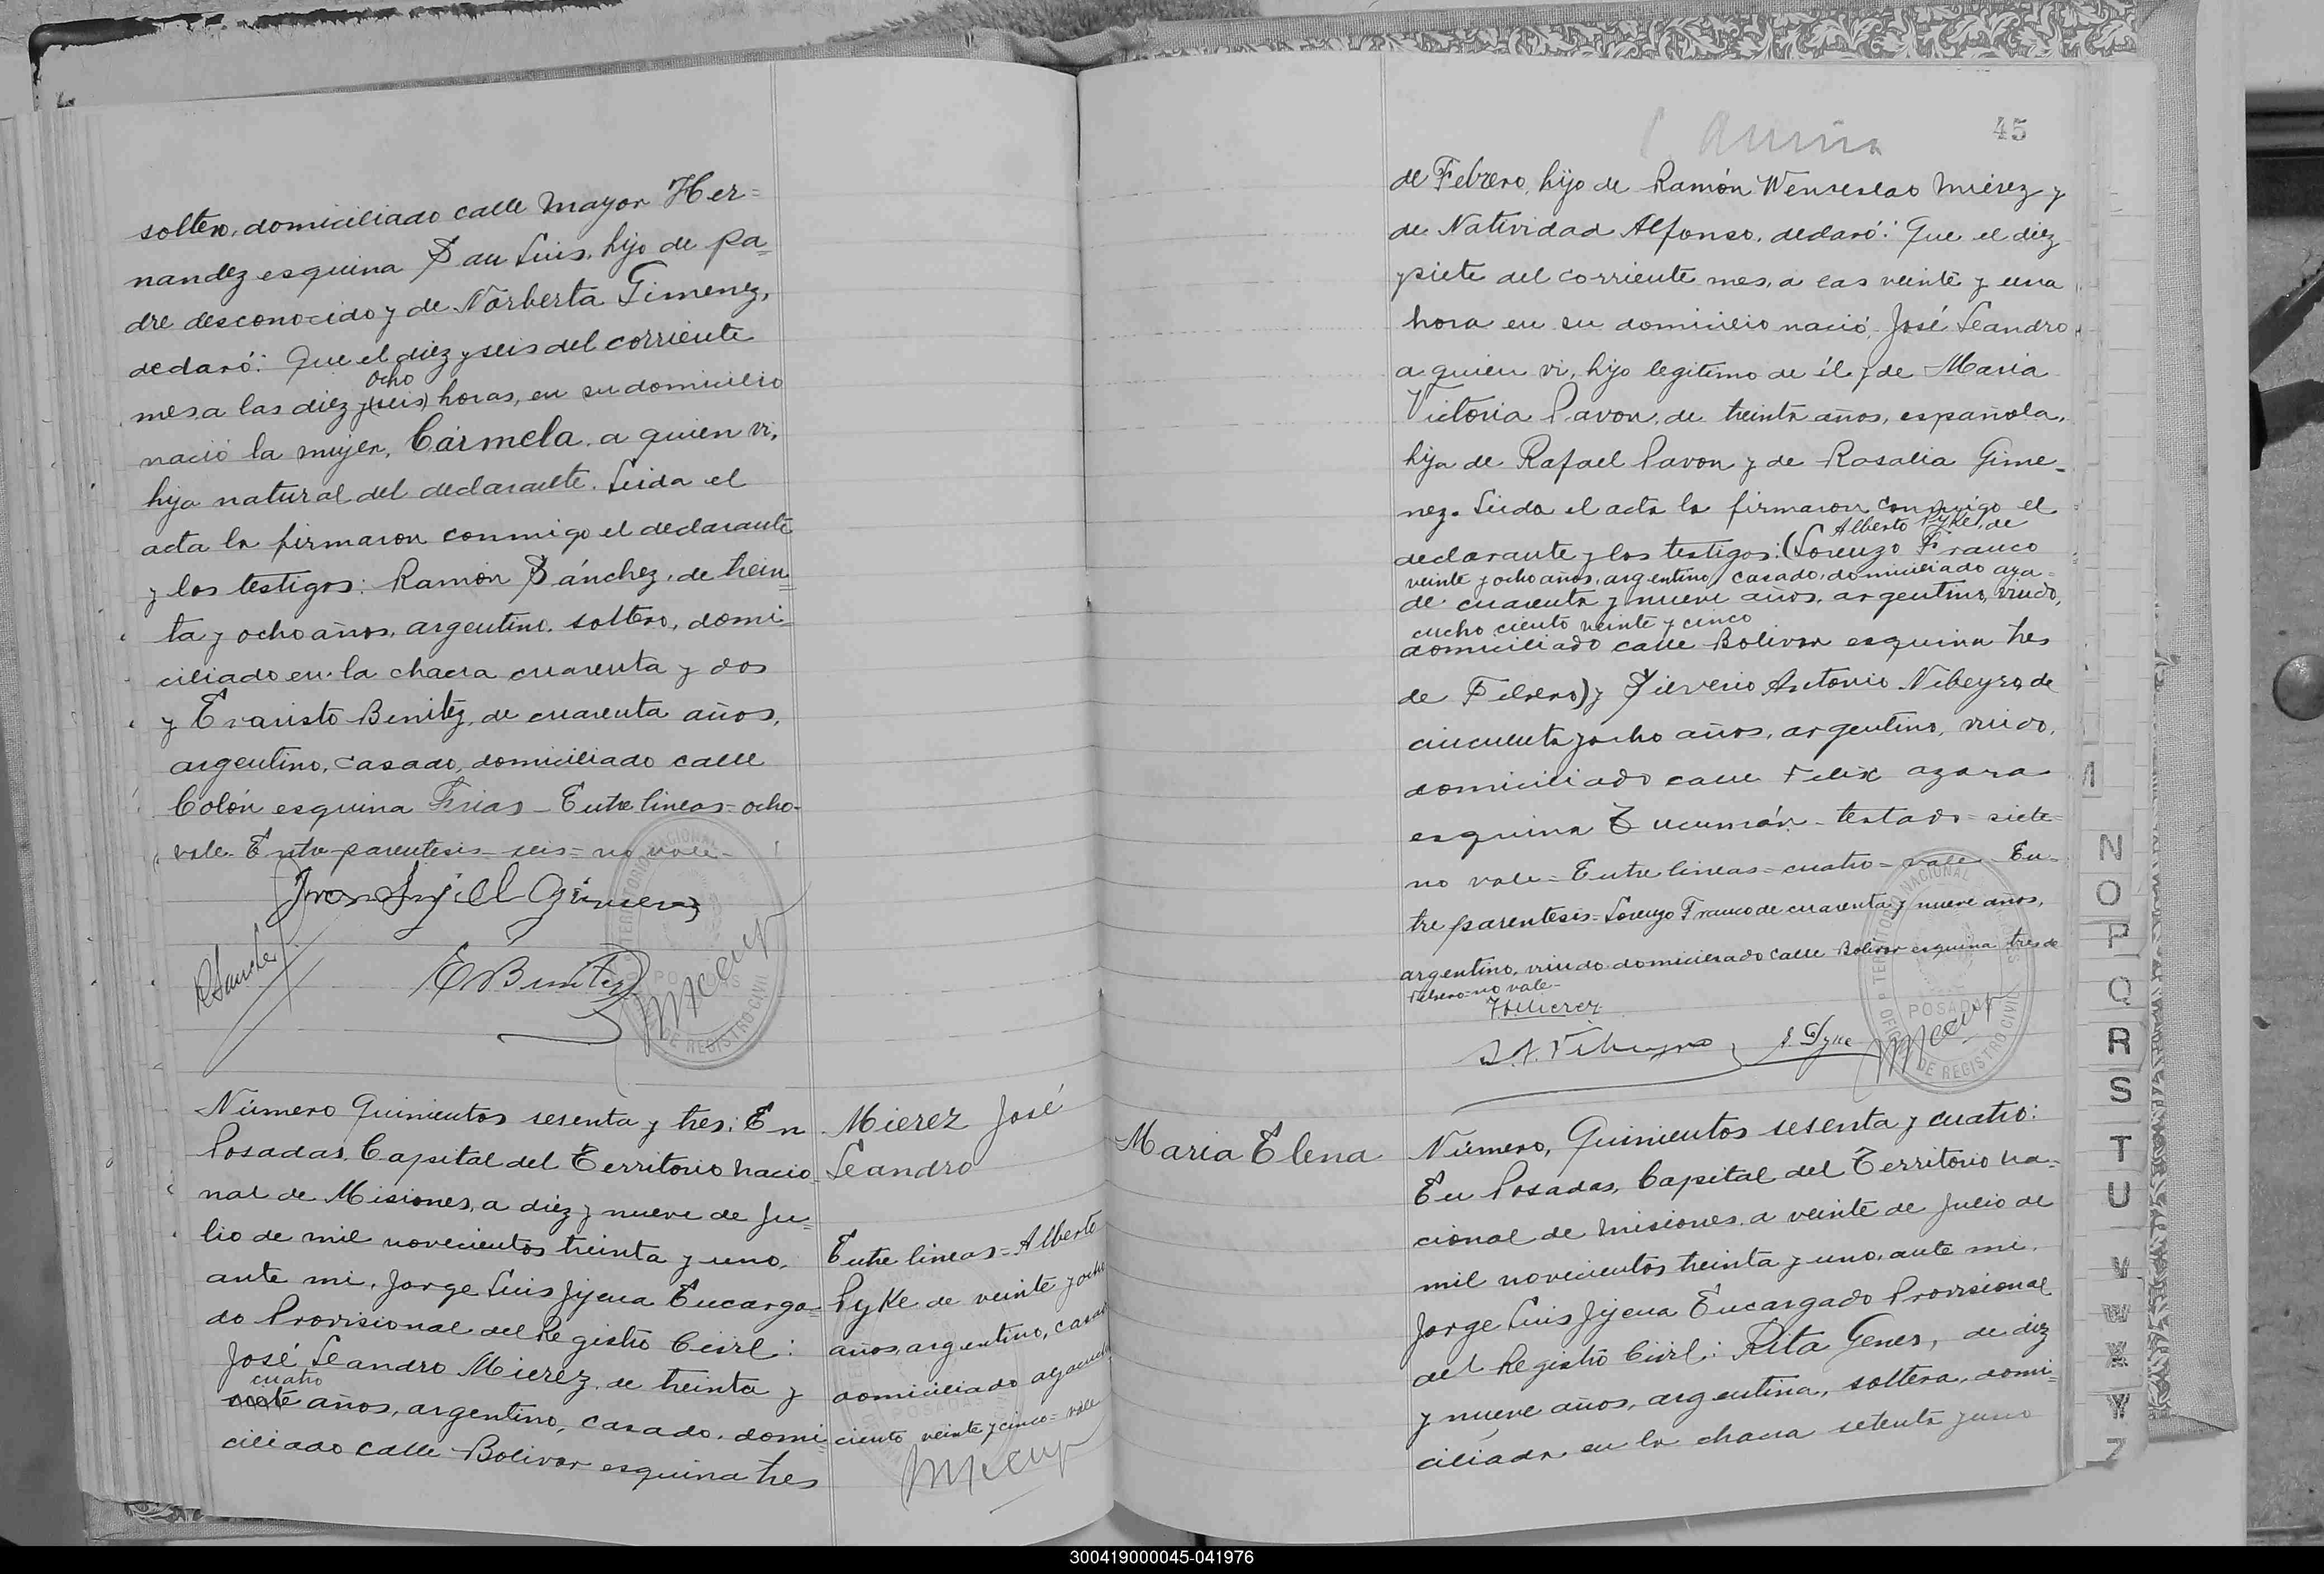 soltero, domiciliado calle Mayor Her=
nandez esquina San Luis, hijo de pa=
dre desconocido y de Norberta Gimenez,
declaró: Que el diez y seis del corriente
ocho
mes, a las diez y (seis) horas, en su domicilio
nació la mujer, Cármela, a quien vi,
hija natural del declarante. Leida el
acta la firmaron conmigo el declarante
y los testigos: Ramón Sánchez, de trein=
ta y ocho años, argentino, soltero, domi=
ciliado en la chacra cuarenta y dos
y Evaristo Benitez, de cuarenta años,
argentino, casado, domiciliado calle
Colón esquina Frias - Entre lineas = ocho-
vale. Entre parentesis = seis = no vale-
R Sanchez
E Benitez
Número Quinientos sesenta y tres: En
Posadas, Capital del Territorio nacio=
nal de Misiones, a diez y nueve de Ju=
lio de mil novecientos treinta y uno,
ante mi, Jorge Luis Jijena Encarga=
do Provisional del Registro Civil:
José Leandro Mierez, de treinta y
cuatro
siete años, argentino, casado, domi=
ciliado calle Bolivar esquina tres
Mierez José
Leandro
Entre lineas = Alberto
Pyke de veinte y ocho
años, argentino, casado
domiciliado ayacucho
ciento veinte y cinco = vale
45
de Febrero, hijo de Ramón Wenseslao Mierez y
de Natividad Alfonso, declaró: Que el diez
y siete del corriente mes, a las veinte y una
hora en su domicilio nació, José Leandro,
a quien vi, hijo legitimo de él y de Maria
Victoria Pavon, de treinta años, española,
hija de Rafael Pavon y de Rosalia Gime=
nez. Leida el acta la firmaron conmigo el
Alberto Pyke, de
declarante y los testigos: (Lorenzo Franco
veinte y ocho años, argentino, casado, domiciliado aya=
de cuarenta y nueve años, argentino, viudo,
cucho ciento veinte y cinco
domiciliado calle Bolivar esquina tres
de Febrero) y Silverio Antonio Nibeyro, de
cincuenta y ocho años, argentino, viudo,
domiciliado calle Felix azara
esquina Tucumán - testado = siete =
no vale = Entre lineas = cuatro = vale En=
tre parentesis = Lorenzo Franco de cuarenta y nueve años,
argentino, viudo domiciliado calle Bolivar esquina tres de
Febrero = no vale -
J L Mierez
A. Pyke
TERRITORIO NACIONAL
POSADAS
DE REGISTRO CIVIL
Maria Elena
Número, Quinientos sesenta y cuatro:
En Posadas, Capital del Territorio na=
cional de Misiones, a veinte de Julio de
mil novecientos treinta y uno, ante mi,
Jorge Luis Jijena Encargado Provisional
del Registro Civil: Rita Genes, de diez
y nueve años, argentina, soltera, domi=
ciliada en la chacra setenta y uno
N
O
P
Q
R
S
T
U
V
W
X
Y
Z
300419000045-041976